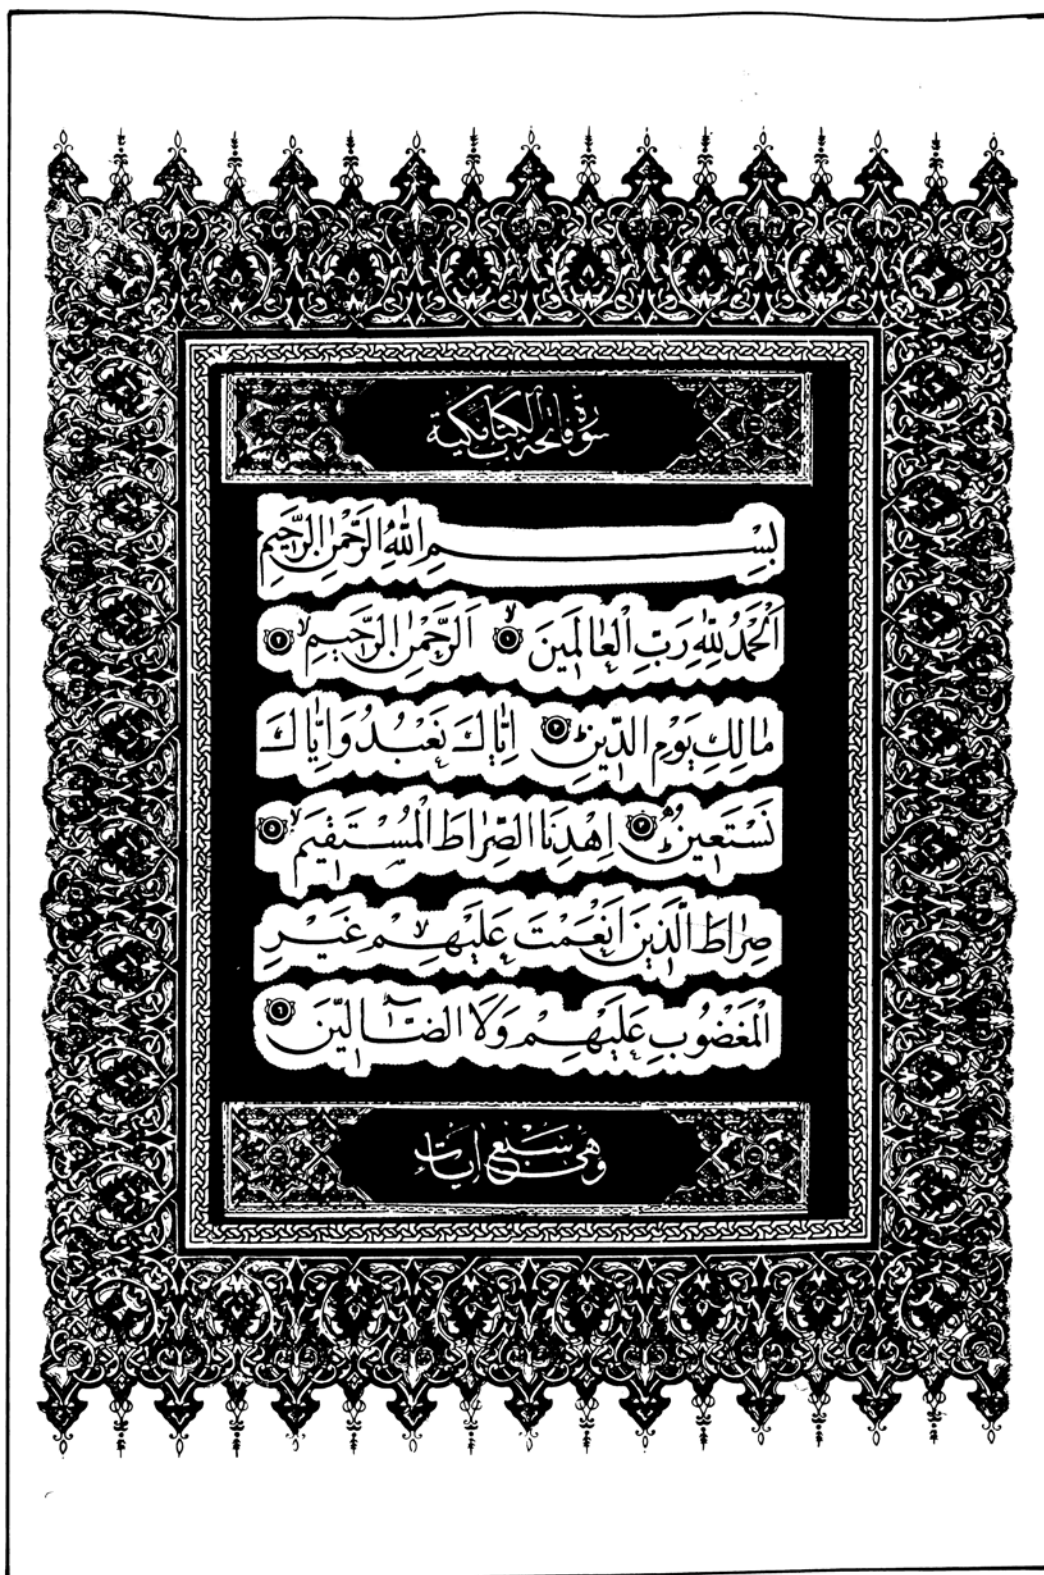 سورة فاتحة الكتاب مكية
بِسْمِ اللّٰهِ الرَّحْمٰنِ الرَّحِيمِ
اَلْحَمْدُ لِلّٰهِ رَبِّ الْعَالَمِينَ ۙ ١ اَلرَّحْمٰنِ الرَّحِيمِ ۙ ٢
مَالِكِ يَوْمِ الدِّينِ ۜ ٣ اِيَّاكَ نَعْبُدُ وَاِيَّاكَ
نَسْتَعِينُ ۜ ٤ اِهْدِنَا الصِّرَاطَ الْمُسْتَقِيمَ ۙ ٥
صِرَاطَ الَّذِينَ اَنْعَمْتَ عَلَيْهِمْ ۙ غَيْرِ
الْمَغْضُوبِ عَلَيْهِمْ وَلَا الضَّٓالِّينَ ٦
وهى سبع ايات